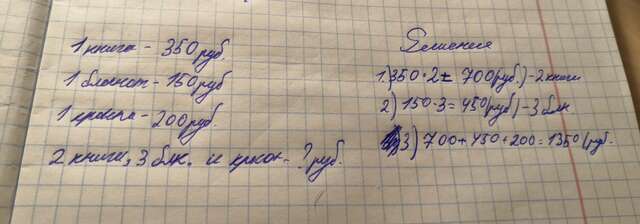 1 книга - 350 руб.
1 блокнот - 150 руб
1 краска - 200 руб.
2 книги, 3 блк. и красок - ? руб.
Решение
1.) 350 · 2 = 700 (руб.) - 2 книги
2) 150 · 3 = 450 (руб) - 3 блк
3) 700 + 450 + 200 = 1350 (руб.